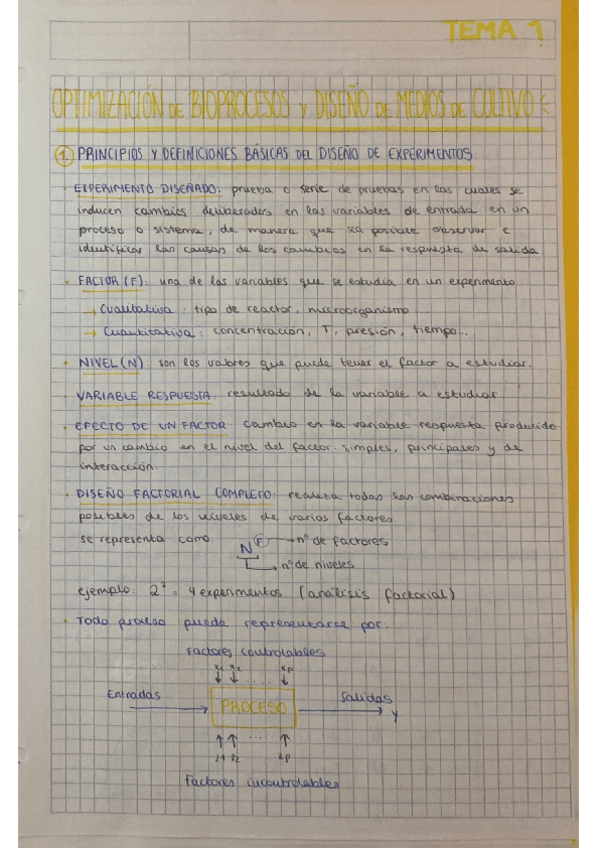 TEMA 1
OPTIMIZACIÓN DE BIOPROCESOS Y DISEÑO DE MEDIOS DE CULTIVO
1. PRINCIPIOS Y DEFINICIONES BÁSICAS DEL DISEÑO DE EXPERIMENTOS
· EXPERIMENTO DISEÑADO: prueba o serie de pruebas en las cuales se
inducen cambios deliberados en las variables de entrada en un
proceso o sistema, de manera que sea posible observar e
identificar las causas de los cambios en la respuesta de salida.
· FACTOR (F): una de las variables que se estudia en un experimento
→ Cualitativa: tipo de reactor, microorganismo...
→ Cuantitativa: concentración, T, presión, tiempo...
· NIVEL (N): son los valores que puede tener el factor a estudiar.
· VARIABLE RESPUESTA: resultado de la variable a estudiar
· EFECTO DE UN FACTOR: cambio en la variable respuesta producido
por un cambio en el nivel del factor: simples, principales y de
interacción.
· DISEÑO FACTORIAL COMPLETO: realiza todas las combinaciones
posibles de los niveles de varios factores.
se representa como: N^F → nº de factores
→ nº de niveles
ejemplo: 2² = 4 experimentos (análisis factorial)
· Todo proceso puede representarse por:
Factores controlables
x₁ x₂ ..... xp
Entradas → PROCESO → Salidas y
z₁ z₂ ..... zp
Factores incontrolables